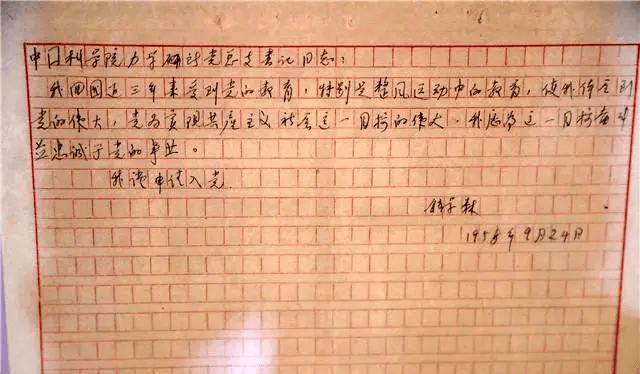 中国科学院力学研究所党总支书记同志：
我回国近三年来受到党的教育，特别是整风运动中的教育，使我体会到
党的伟大，党为实现共产主义社会这一目标的伟大。我愿为这一目标奋斗
并忠诚于党的事业。
我谨申请入党
钱学森
1958年9月24日